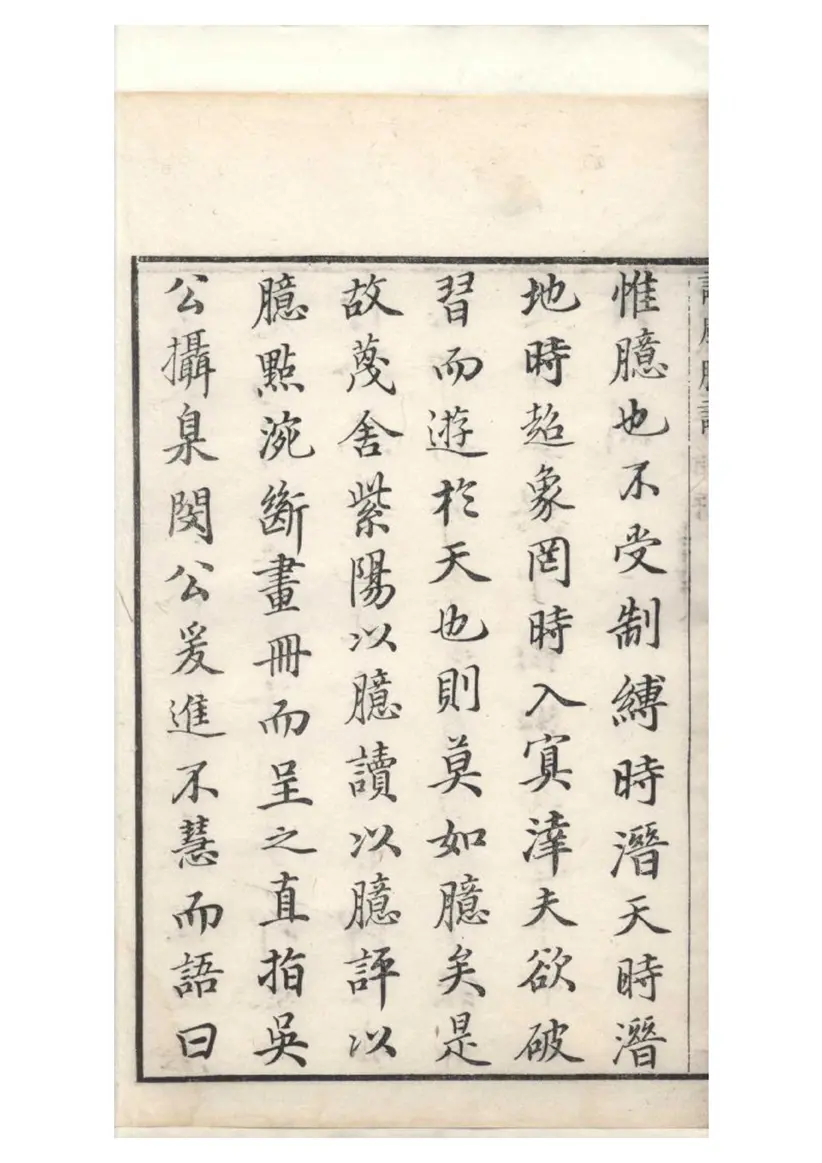 惟臆也不受制縛時潛天時潛
地時超象罔時入㝠涬夫欲破
習而遊於天也則莫如臆矣是
故蔑舍紫陽以臆讀以臆評以
臆點涴斷畫冊而呈之直指吳
公攝臬閔公爰進不慧而語曰